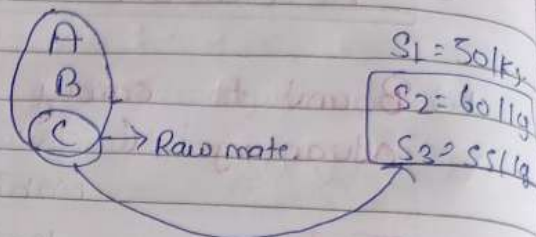 A
B
C → Raw mate.
S1 = 50/kg
S2 = 60/kg
S3 = 55/kg